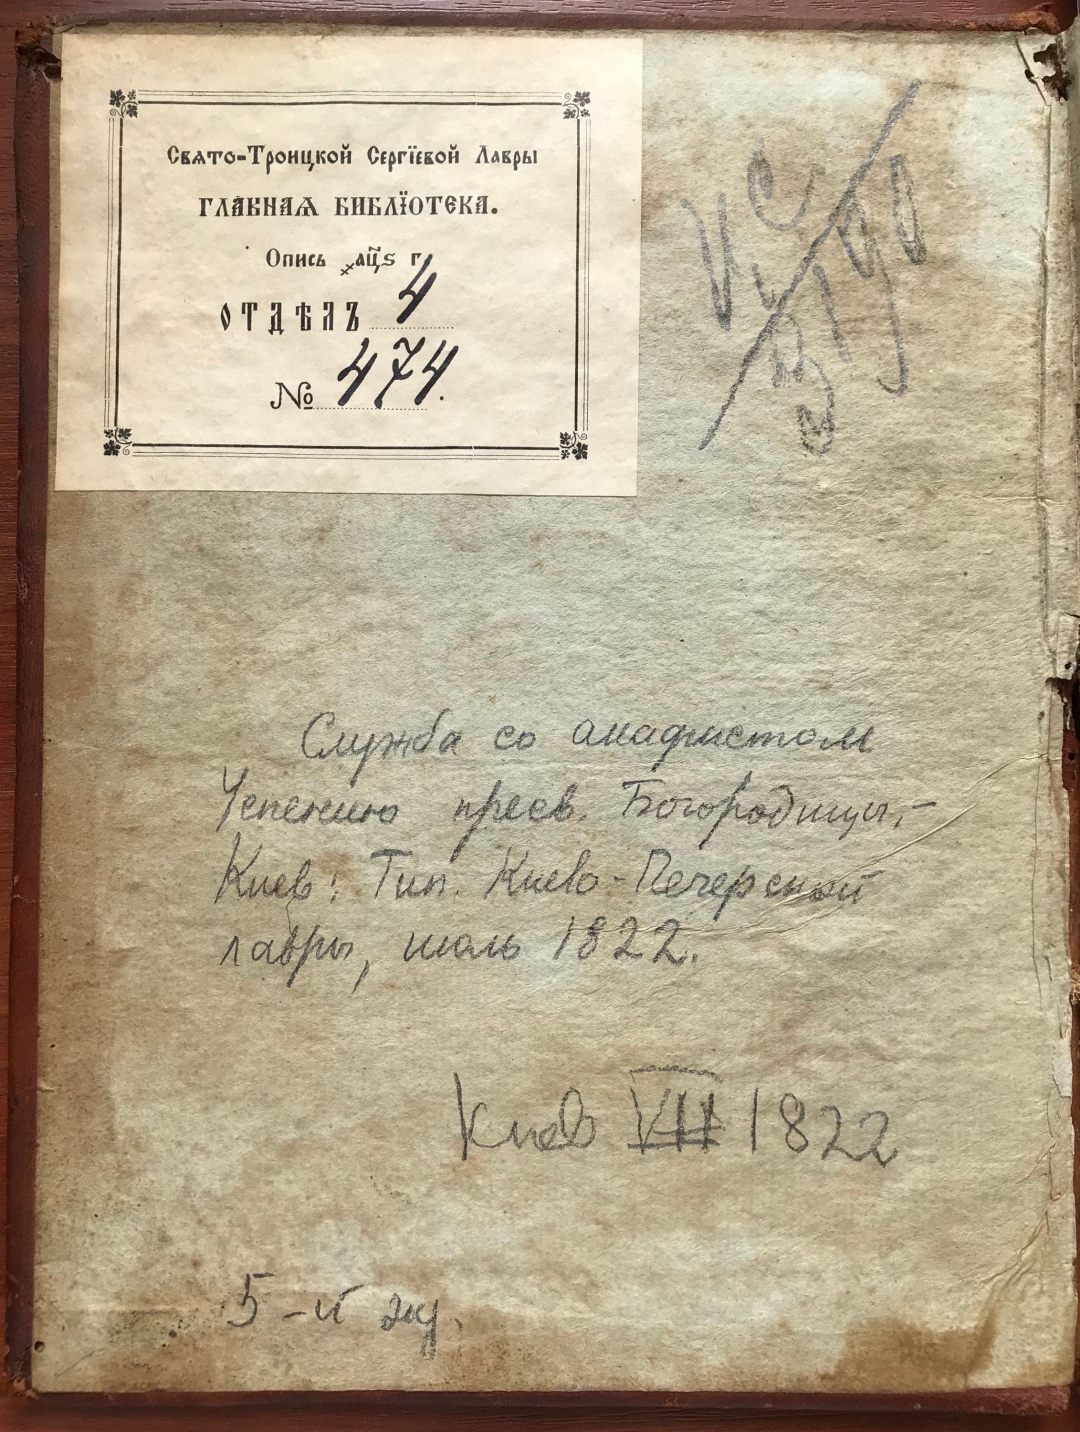 Свято-Троицкой Сергїевой Лавры
ГЛАВНАЯ БИБЛЇОТЕКА.
Опись ҂ац҃ѕ г.
ОТДѢЛЪ 4
№ 474.
Ис
3190
Служба со акафистом
Успению пресв. Богородицы,-
Киев: Тип. Киево-Печерской
лавры, июль 1822.
Киев VII 1822
5-й экз.